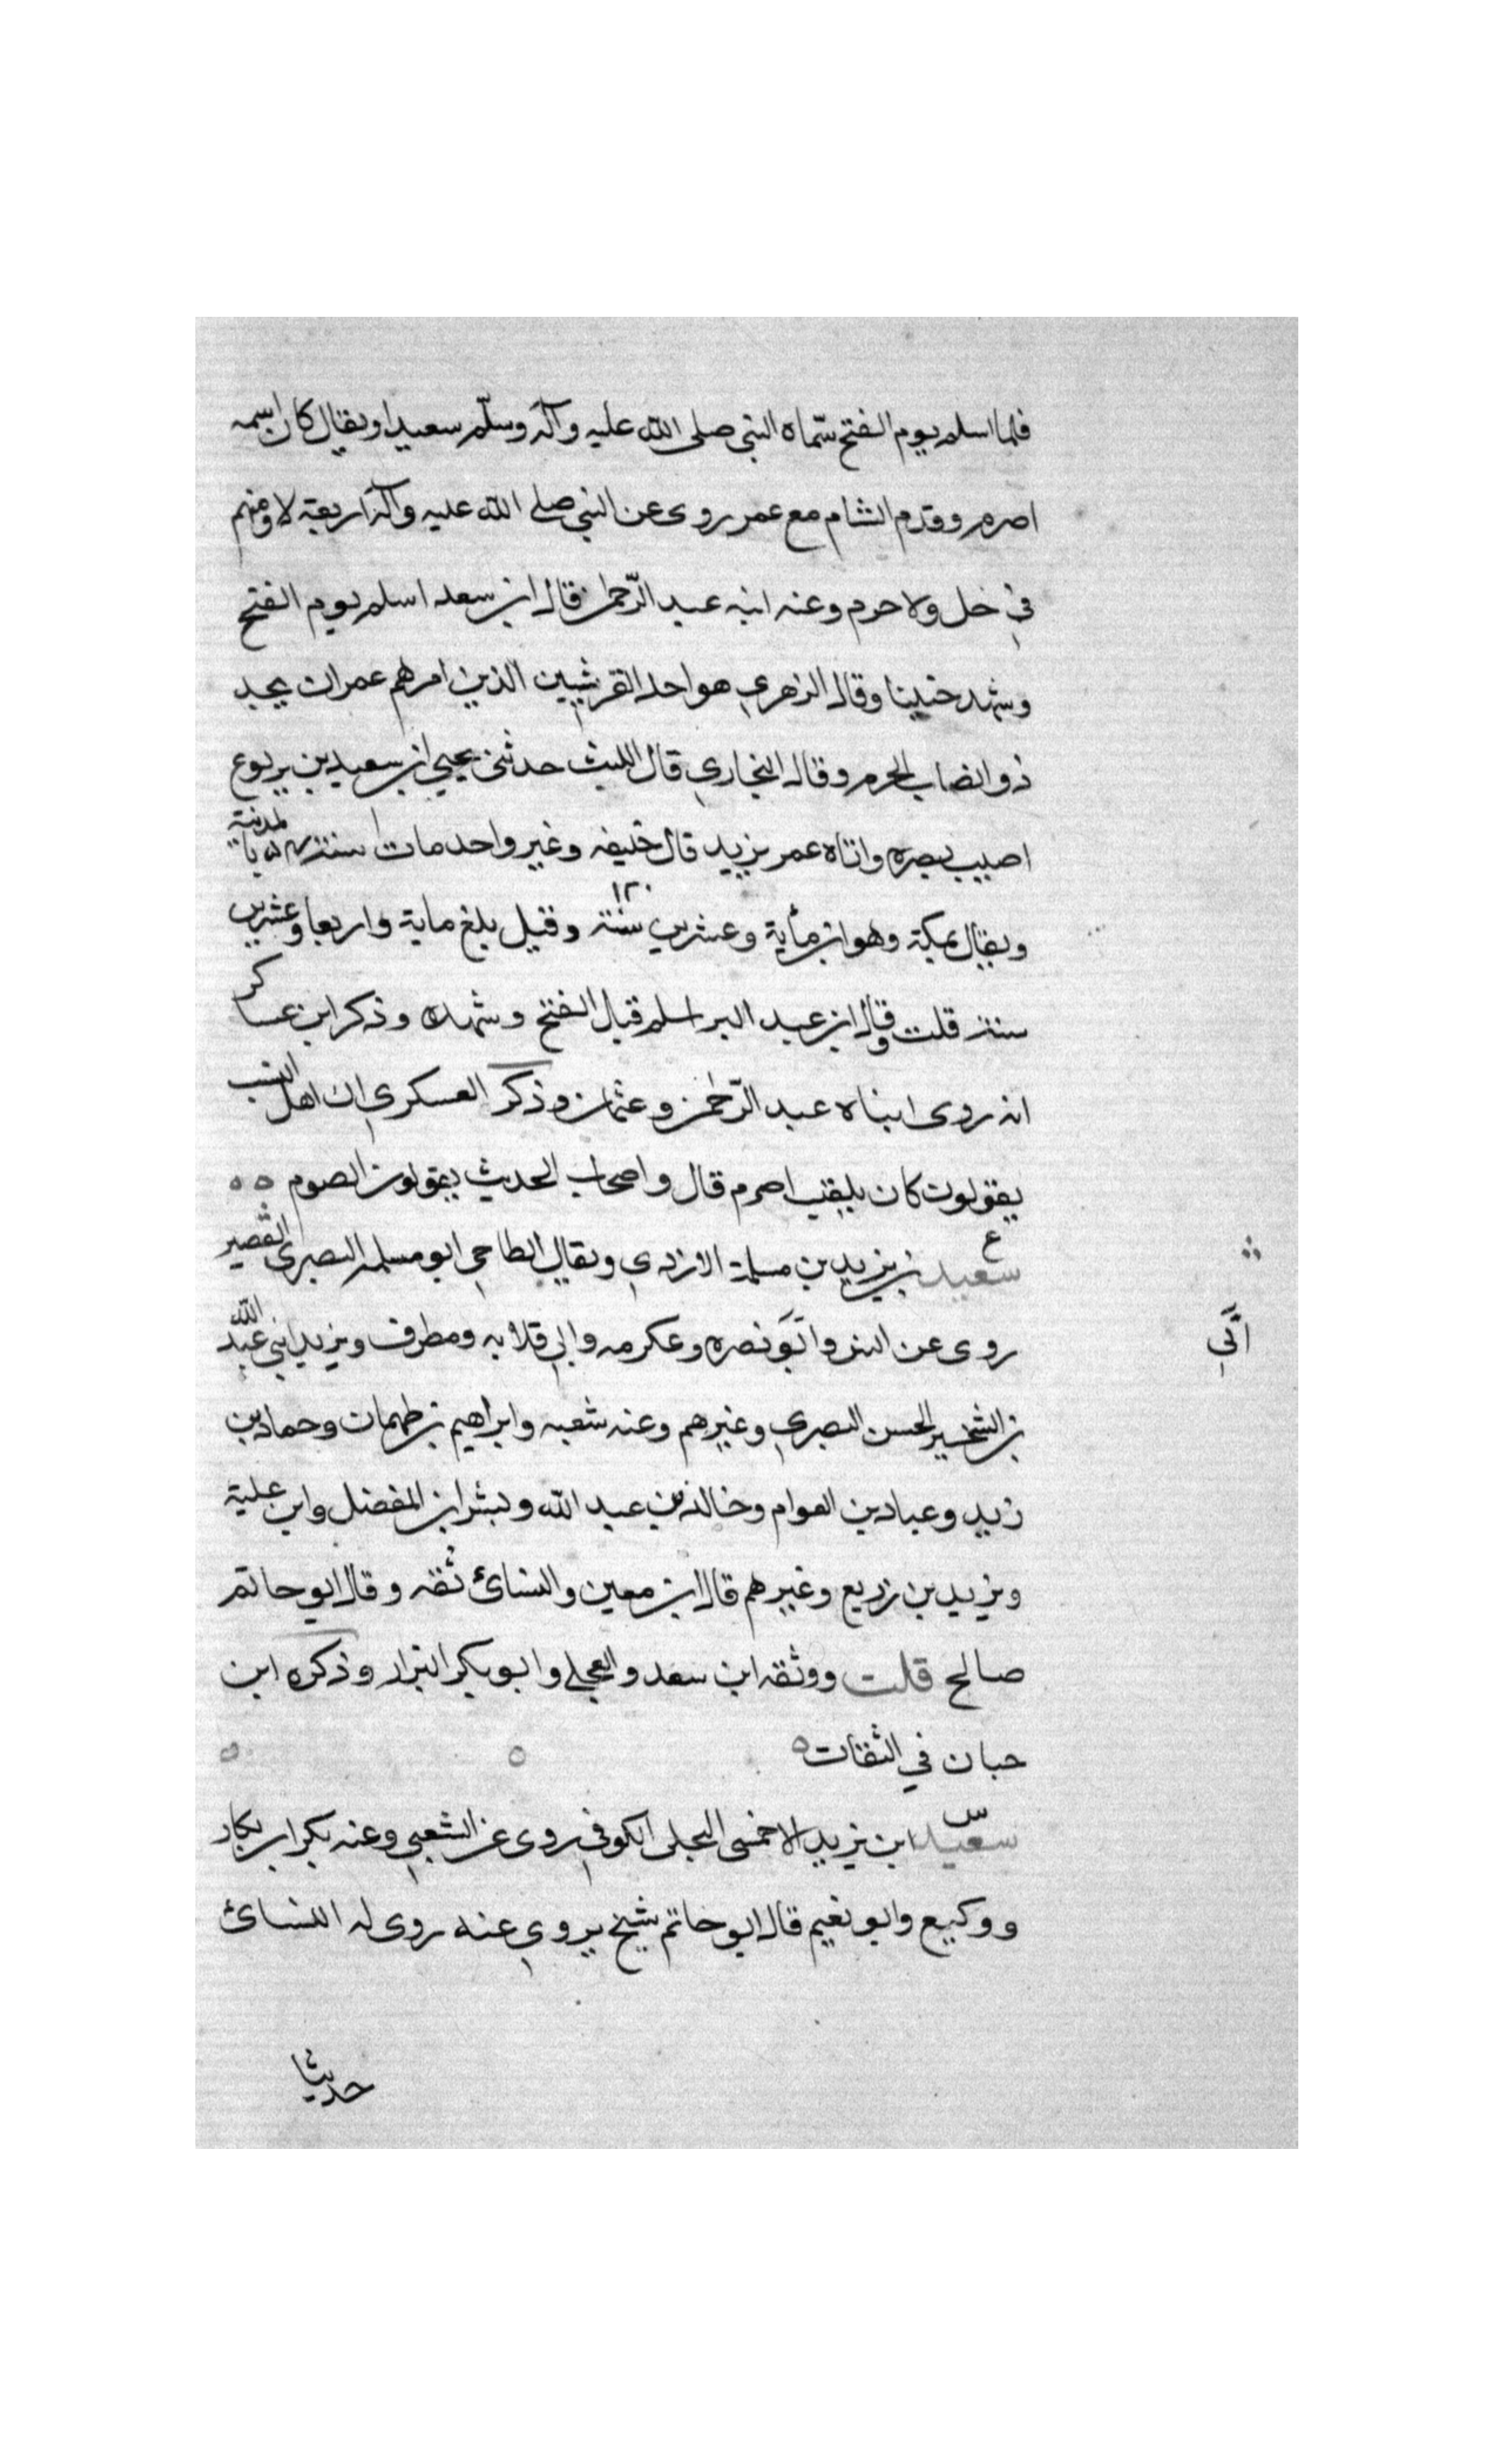 فلما اسلم يوم الفتح سماه النبي صلى الله عليه وآله وسلم سعيدا ويقال كان اسمه
اصرم وقدم الشام مع عمر روى عن النبي صلى الله عليه وآله اربعة لا اومنهم
في حل ولا حرم وعنه ابنه عبد الرّحمان قال ابن سعد اسلم يوم الفتح
وشهد حنينا وقال الزهري هو احد القرشيين الذين امرهم عمر ان يجد
ذو انصاب الحرم وقال البخاري قال الليث حدثني يحيى ابن سعيد بن يربوع
اصيب ببصره واتاه عمر يزيد قال خليفه وغير واحد مات سنة ۵۴ بالمدينة
ويقال بمكة وهو ابن مأية وعشرين سنة ١٢٠ وقيل بلغ ماية واربعا وعشرين
سنة قلت وقال ابن عبد البر اسلم قبل الفتح وشهده وذكر ابن عساكر
انه روى ابناه عبد الرّحمن وعثمان وذكر العسكري ان اهل النسب
يقولون كان يلقب اصرم قال واصحاب الحديث يقولون الصوم ه ه
ع
سعيد بن يزيد بن مسلمة الازدي ويقال الطاحي ابو مسلم البصري القصير
روى عن انس وابو نصره وعكرمه وابي قلابه ومطرف ويزيد ابني عبد الله
أبي
بن الشخير الحسن البصري وغيرهم وعنه شعبه وابراهيم بن طهمان وحماد بن
زيد وعباد بن العوام وخالد بن عبد الله وبشر ابن المفضل وابن علية
ويزيد بن زريع وغيرهم قال ابن معين والنسائ ثقه وقال ابو حاتم
صالح قلت ووثقه ابن سعد والعجلي وابو بكر البزار وذكره ابن
حبان في الثقات ه ه ه
س
سعيد ابن يزيد الاحمسى البجلى الكوفي روى عن الشعبي وعنه بكر ابن بكار
ووكيع وابو نعيم قال ابو حاتم شيخ يروي عنه روى له النسائ
حديثا